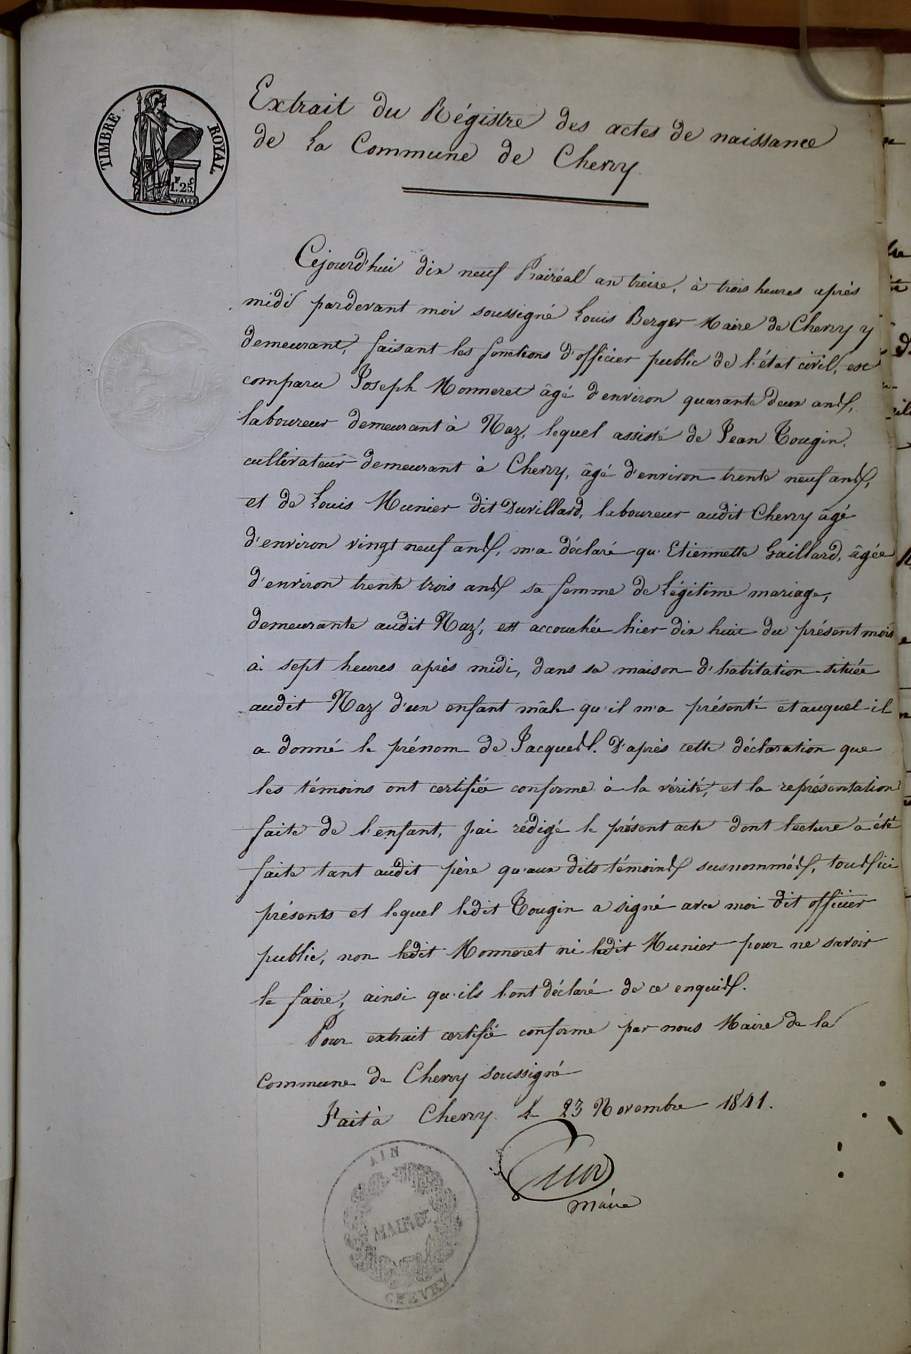 TIMBRE ROYAL
1 F 25 C
Extrait du Régistre des actes de naissance
de la Commune de Chevry
Cejourd'hui dix neuf Prairéal an treize, à trois heures après
midi pardevant moi soussigné Louis Berger Maire de Chevry y
demeurant, faisant les fonctions d'officier public de l'état civil, est
comparu Joseph Monneret âgé d'environ quarante deux ans,
laboureur demeurant à Naz, lequel assisté de Jean Tougin,
cultivateur demeurant à Chevry, âgé d'environ trente neuf ans,
et de Louis Munier dit Duvillard, laboureur audit Chevry âgé
d'environ vingt neuf ans, m'a déclaré qu'Etiennette Gaillard, âgée
d'environ trente trois ans sa femme de légitime mariage,
demeurante audit Naz, est accouchée hier dix huit du présent mois
à sept heures après midi, dans sa maison d'habitation située
audit Naz d'un enfant mâle qu'il m'a présenté et auquel il
a donné le prénom de Jacques. D'après cette déclaration que
les témoins ont certifiée conforme à la vérité, et la représentation
faite de l'enfant, j'ai rédigé le présent acte dont lecture a été
faite tant audit père qu'aux dits témoins susnommés, tous ici
présents et lequel ledit Tougin a signé avec moi dit officier
public, non ledit Monneret ni ledit Munier pour ne savoir
le faire, ainsi qu'ils l'ont déclaré de ce enquis.
Pour extrait certifié conforme par nous Maire de la
Commune de Chevry soussigné
Fait à Chevry le 23 Novembre 1841.
Maire
AIN
MAIRIE
CHEVRY